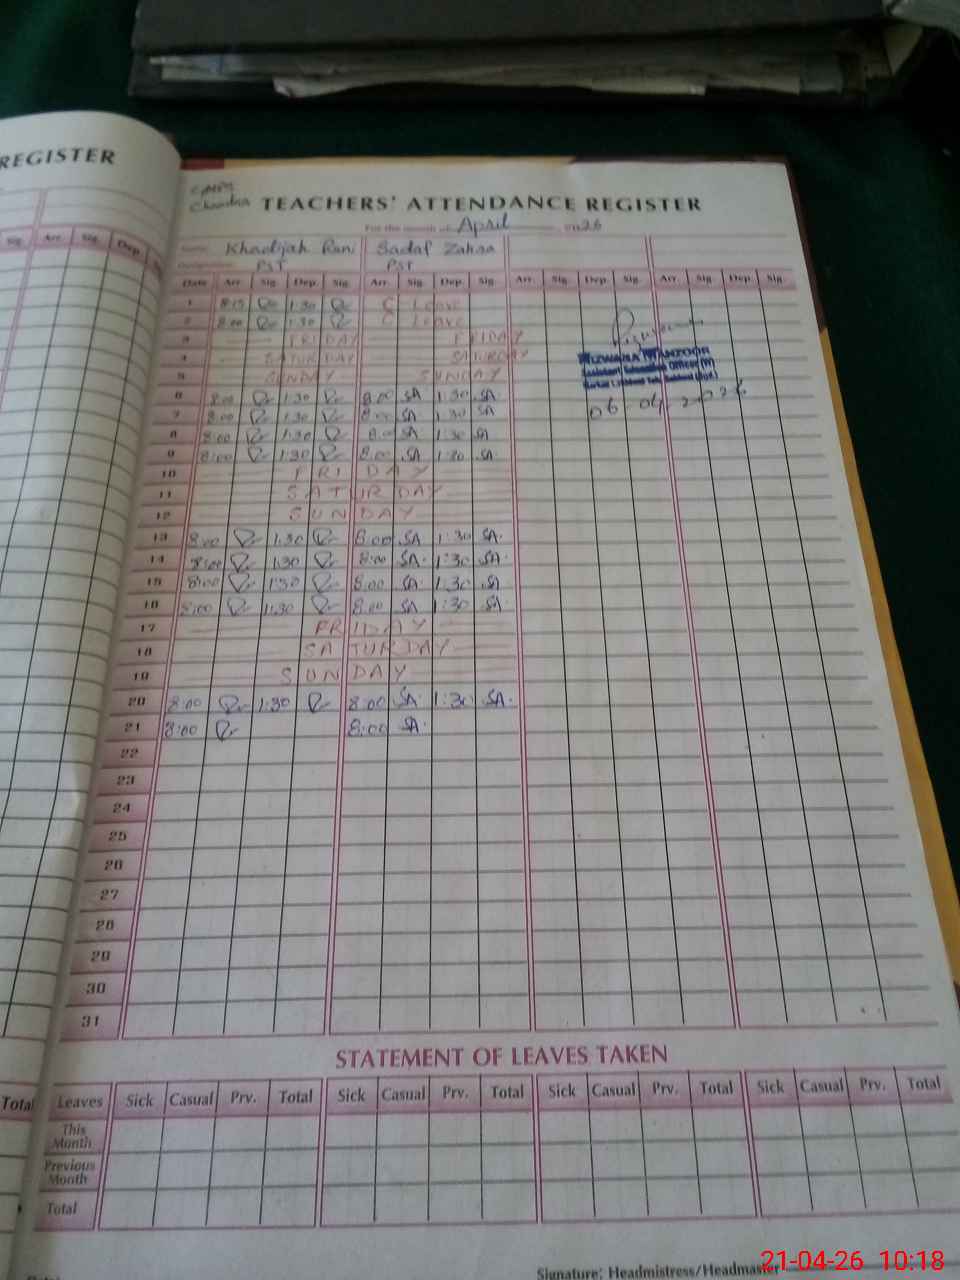 REGISTER
Sig. Arr. Sig. Dep.
Total
Chandra
TEACHERS' ATTENDANCE REGISTER
For the month of April 2026
Name Khadijah Rani Sadaf Zahra
PST PST
Date Arr. Sig. Dep. Sig. Arr. Sig. Dep. Sig. Arr. Sig. Dep. Sig. Arr. Sig. Dep. Sig.
1 8:15 1:30 C Leave
2 8:00 1:30 C Leave
3 FRIDAY FRIDAY
4 SATURDAY SATURDAY
5 SUNDAY SUNDAY
MANZOOR
Assistant Education Officer
06-04-2026
6 8:00 1:30 8:00 SA 1:30 SA
7 8:00 1:30 8:00 SA 1:30 SA
8 8:00 1:30 8:00 SA 1:30 SA
9 8:00 1:30 8:00 SA 1:30 SA
10 FRIDAY
11 SATURDAY
12 SUNDAY
13 8:00 1:30 8:00 SA 1:30 SA.
14 8:00 1:30 8:00 SA. 1:30 SA.
15 8:00 1:30 8:00 SA. 1:30 SA.
16 8:00 1:30 8:00 SA 1:30 SA.
17 FRIDAY
18 SATURDAY
19 SUNDAY
20 8:00 1:30 8:00 SA. 1:30 SA.
21 8:00 8:00 SA.
22
23
24
25
26
27
28
29
30
31
STATEMENT OF LEAVES TAKEN
Leaves Sick Casual Prv. Total Sick Casual Prv. Total Sick Casual Prv. Total Sick Casual Prv. Total
This Month
Previous Month
Total
Signature: Headmistress/Headmaster
21-04-26 10:18